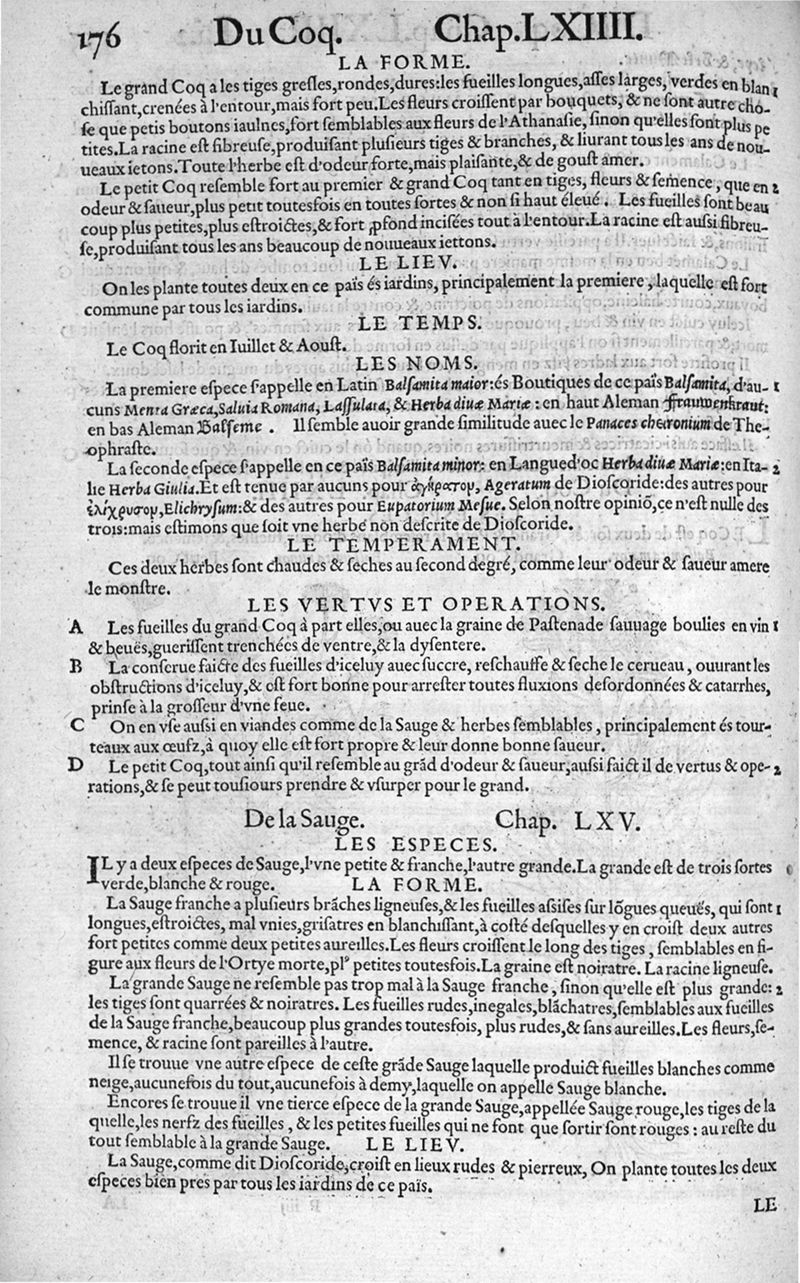 176 Du Coq. Chap. LXIIII.
LA FORME.
Le grand Coq a les tiges gresles, rondes, dures: les fueilles longues, asses larges, verdes en blan 1
chissant, crenées à l'entour, mais fort peu. Les fleurs croissent par bouquets, & ne sont autre cho-
se que petis boutons iaulnes, fort semblables aux fleurs de l'Athanasie, sinon qu'elles sont plus pe
tites. La racine est fibreuse, produisant plusieurs tiges & branches, & liurant tous les ans de nou-
ueaux ietons. Toute l'herbe est d'odeur forte, mais plaisante, & de goust amer.
Le petit Coq resemble fort au premier & grand Coq tant en tiges, fleurs & semence, que en 2
odeur & saueur, plus petit toutesfois en toutes sortes & non si haut éleué. Les fueilles sont beau
coup plus petites, plus estroictes, & fort ꝓfond incisées tout à l'entour. La racine est aussi fibreu-
se, produisant tous les ans beaucoup de nouueaux iettons.
LE LIEV.
On les plante toutes deux en ce païs és iardins, principalement la premiere, laquelle est fort
commune par tous les iardins.
LE TEMPS.
Le Coq florit en Iuillet & Aoust.
LES NOMS.
La premiere espece s'appelle en Latin Balsamita maior: és Boutiques de ce païs Balsamita, d'au- 1
cuns Menta Græca, Saluia Romana, Lassulata, & Herba diuæ Mariæ: en haut Aleman Frauwenkraut:
en bas Aleman Balseme. Il semble auoir grande similitude auec le Panaces cheironium de The-
ophraste.
La seconde espece s'appelle en ce païs Balsamita minor: en Langued'oc Herba diuæ Mariæ: en Ita- 2
lie Herba Giulia. Et est tenue par aucuns pour ἀγήρατον, Ageratum de Dioscoride: des autres pour
ἑλίχρυσον, Elichrysum: & des autres pour Eupatorium Mesue. Selon nostre opiniõ, ce n'est nulle des
trois: mais estimons que soit vne herbe non descrite de Dioscoride.
LE TEMPERAMENT.
Ces deux herbes sont chaudes & seches au second degré, comme leur odeur & saueur amere
le monstre.
LES VERTVS ET OPERATIONS.
A Les fueilles du grand Coq à part elles, ou auec la graine de Pastenade sauuage boulies en vin 1
& beuës, guerissent trenchées de ventre, & la dysentere.
B La conserue faicte des fueilles d'iceluy auec succre, reschauffe & seche le cerueau, ouurant les
obstructions d'iceluy, & est fort bonne pour arrester toutes fluxions desordonnées & catarrhes,
prinse à la grosseur d'vne feue.
C On en vse aussi en viandes comme de la Sauge & herbes semblables, principalement és tour-
teaux aux œufz, à quoy elle est fort propre & leur donne bonne saueur.
D Le petit Coq, tout ainsi qu'il resemble au grãd d'odeur & saueur, aussi faict il de vertus & ope- 2
rations, & se peut tousiours prendre & vsurper pour le grand.
De la Sauge. Chap. LXV.
LES ESPECES.
IL y a deux especes de Sauge, l'vne petite & franche, l'autre grande. La grande est de trois sortes
verde, blanche & rouge. LA FORME.
La Sauge franche a plusieurs brãches ligneuses, & les fueilles assises sur lõgues queuës, qui sont 1
longues, estroictes, mal vnies, grisatres en blanchissant, à costé desquelles y en croist deux autres
fort petites comme deux petites aureilles. Les fleurs croissent le long des tiges, semblables en fi-
gure aux fleurs de l'Ortye morte, plꝰ petites toutesfois. La graine est noiratre. La racine ligneuse.
La grande Sauge ne resemble pas trop mal à la Sauge franche, sinon qu'elle est plus grande: 2
les tiges sont quarrées & noiratres. Les fueilles rudes, inegales, blãchatres, semblables aux fueilles
de la Sauge franche, beaucoup plus grandes toutesfois, plus rudes, & sans aureilles. Les fleurs, se-
mence, & racine sont pareilles à l'autre.
Il se trouue vne autre espece de ceste grãde Sauge laquelle produict fueilles blanches comme
neige, aucunefois du tout, aucunefois à demy, laquelle on appelle Sauge blanche.
Encores se trouue il vne tierce espece de la grande Sauge, appellée Sauge rouge, les tiges de la
quelle, les nerfz des fueilles, & les petites fueilles qui ne font que sortir sont rouges: au reste du
tout semblable à la grande Sauge. LE LIEV.
La Sauge, comme dit Dioscoride, croist en lieux rudes & pierreux, On plante toutes les deux
especes bien pres par tous les iardins de ce païs.
LE